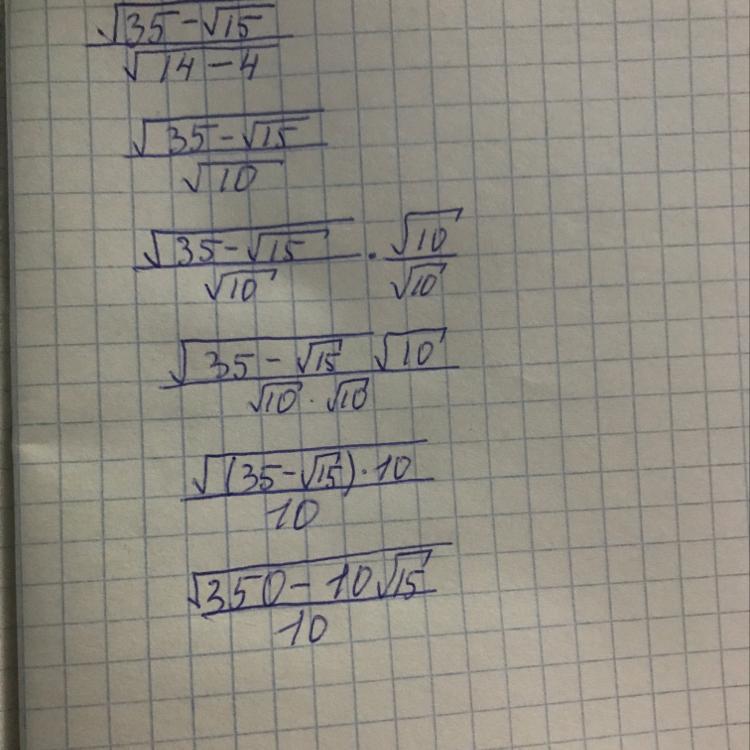 √(35-√15) / √(14-4)
√(35-√15) / √10
√(35-√15) / √10 · √10 / √10
√(35-√15) √10 / √10 · √10
√((35-√15)·10) / 10
√(350-10√15) / 10